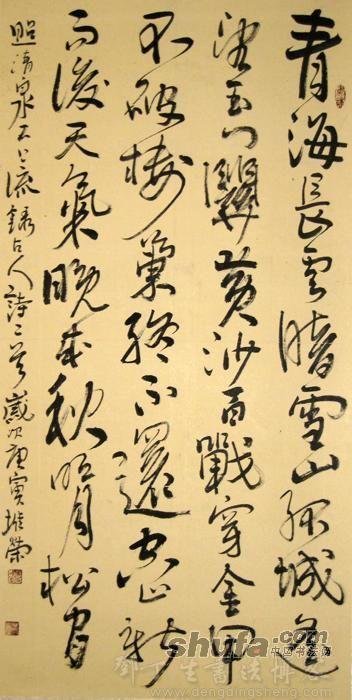 青海長雲暗雪山孤城遙
望玉门關黃沙百戰穿金甲
不破樓蘭終不還空山新
雨後天氣晚來秋明月松間
照清泉石上流錄古人詩二首歲次庚寅榮
shufa.com
中国书法网
邓丁生書法博客
www.dengdingsheng.com